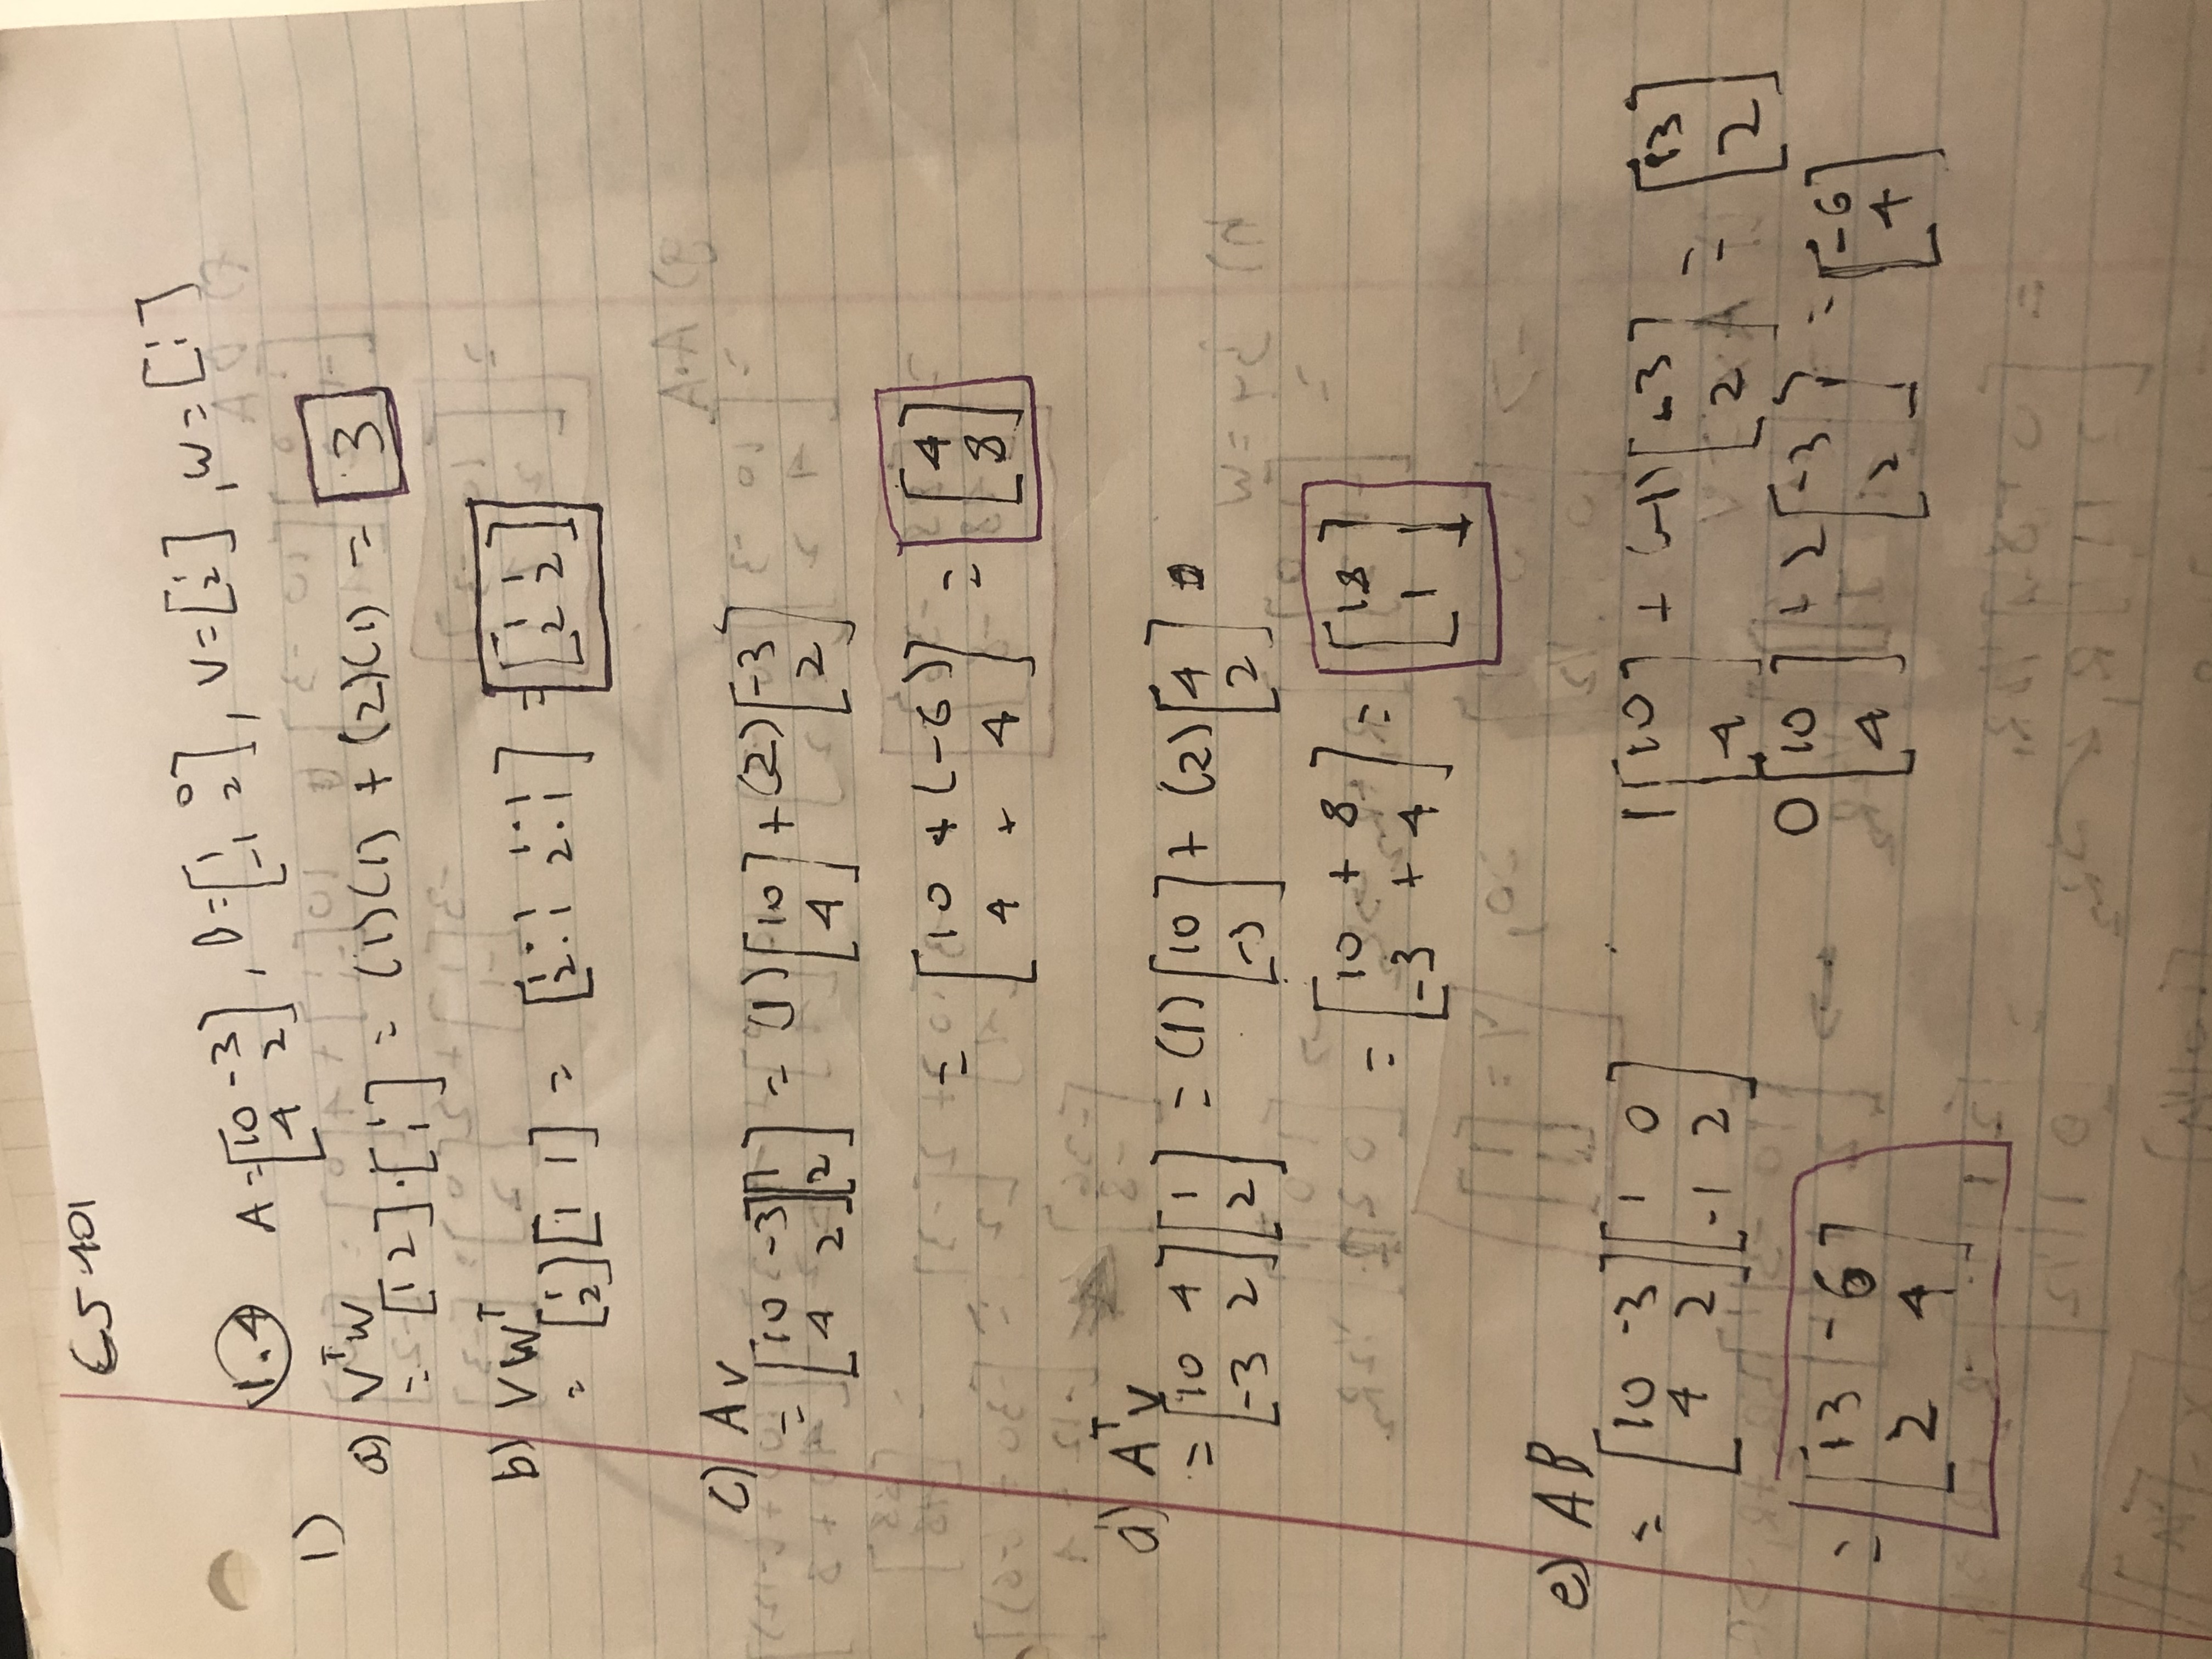 CS 101
1.4 A = [10 -3; 4 2], B = [1 0; -1 2], V = [1; 2], W = [1; 1]
1)
a) VᵀW
= [1 2]·[1; 1] = (1)(1) + (2)(1) = 3
b) VWᵀ
= [1; 2][1 1] = [1·1 1·1; 2·1 2·1] = [1 1; 2 2]
c) Av
= [10 -3; 4 2][1; 2] = (1)[10; 4] + (2)[-3; 2]
= [10 + (-6); 4 + 4] = [4; 8]
d) Aᵀv
= [10 4; -3 2][1; 2] = (1)[10; -3] + (2)[4; 2]
= [10 + 8; -3 + 4] = [18; 1]
e) AB
= [10 -3; 4 2][1 0; -1 2] 1[10; 4] + (-1)[-3; 2] = [13; 2]
= [13 -6; 2 4] 0[10; 4] + 2[-3; 2] = [-6; 4]